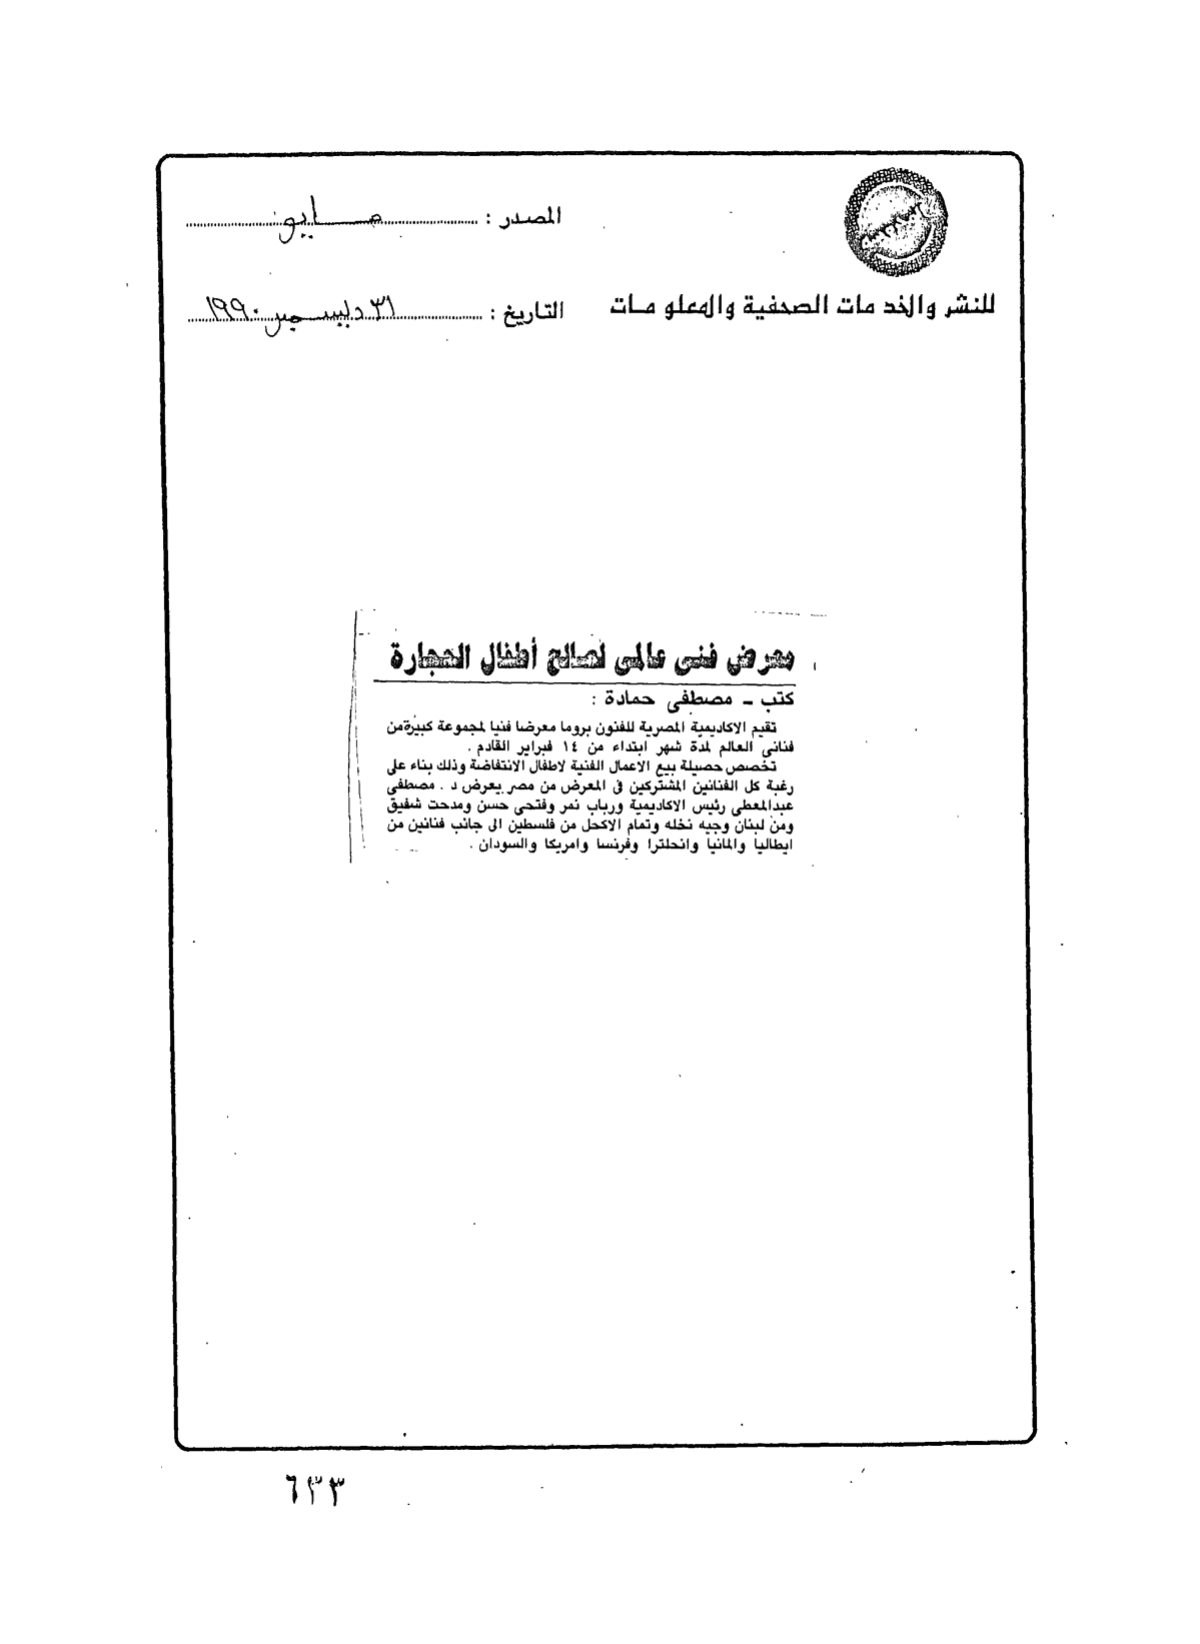 المصدر : مايو
للنشر والخدمات الصحفية والمعلومات
التاريخ : ٣١ ديسمبر ١٩٩٠
معرض فنى عالمى لصالح أطفال الحجارة
كتب ـ مصطفى حمادة :
تقيم الاكاديمية المصرية للفنون بروما معرضا فنيا لمجموعة كبيرة من
فنانى العالم لمدة شهر ابتداء من ١٤ فبراير القادم .
تخصص حصيلة بيع الاعمال الفنية لاطفال الانتفاضة وذلك بناء على
رغبة كل الفنانين المشتركين فى المعرض من مصر يعرض د . مصطفى
عبدالمعطى رئيس الاكاديمية ورباب نمر وفتحى حسن ومدحت شفيق
ومن لبنان وجيه نخله وتمام الاكحل من فلسطين الى جانب فنانين من
ايطاليا والمانيا وانجلترا وفرنسا وامريكا والسودان .
٦٣٣